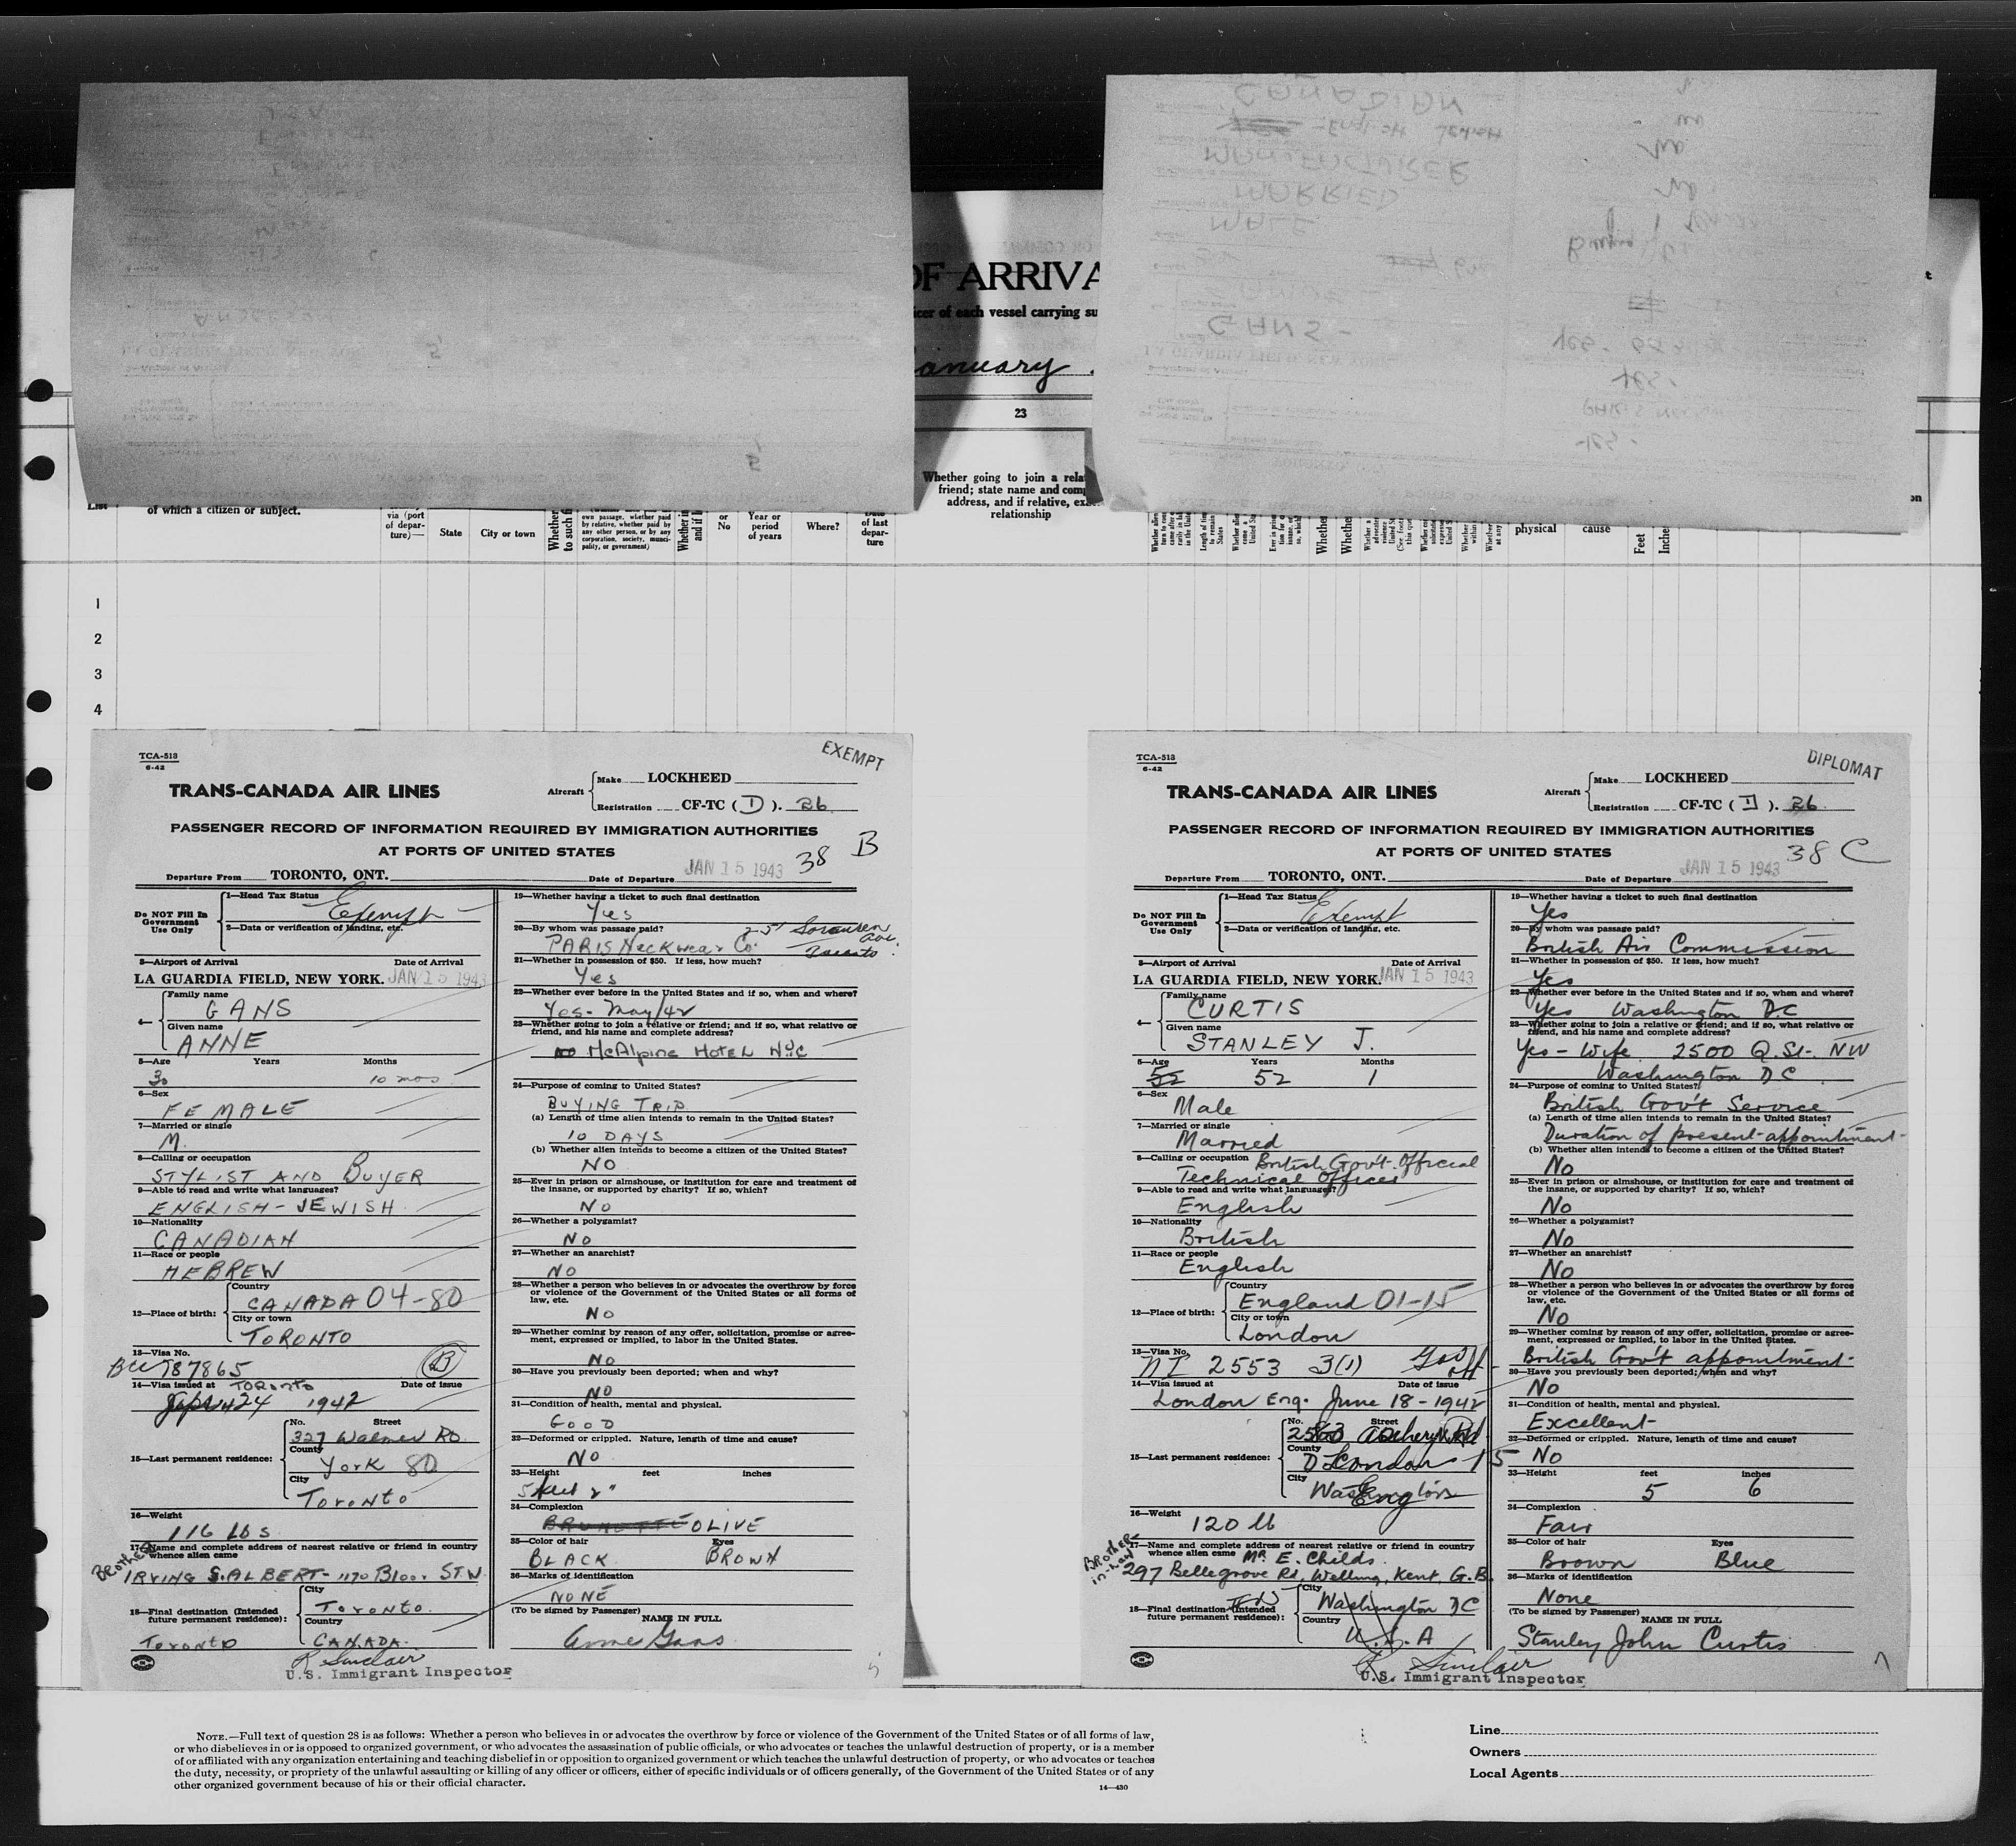 OF ARRIVA
icer of each vessel carrying su
anuary
23
Whether going to join a rela
friend; state name and comp
address, and if relative, ex
relationship
of which a citizen or subject.
via (port
of depar-
ture)—
State
City or town
Whether
to such f
own passage, whether paid
by relative, whether paid by
any other person, or by any
corporation, society, munici-
pality, or government)
or
No
Year or
period
of years
Where?
of last
depar-
ture
physical
cause
Feet
Inche
1
2
3
4
TCA-513
6-42
EXEMPT
TRANS-CANADA AIR LINES
Aircraft
Make LOCKHEED
Registration CF-TC ( D ). 26
PASSENGER RECORD OF INFORMATION REQUIRED BY IMMIGRATION AUTHORITIES
AT PORTS OF UNITED STATES
38 B
Departure From TORONTO, ONT. Date of Departure JAN 15 1943
Do NOT Fill In
Government
Use Only
1—Head Tax Status Exempt
2—Data or verification of landing, etc.
3—Airport of Arrival Date of Arrival
LA GUARDIA FIELD, NEW YORK. JAN 15 1943
Family name
GANS
Given name
ANNE
5—Age Years Months
30 10 mos
6—Sex
FEMALE
7—Married or single
M.
8—Calling or occupation
STYLIST AND BUYER
9—Able to read and write what languages?
ENGLISH-JEWISH
10—Nationality
CANADIAN
11—Race or people
HEBREW
12—Place of birth:
Country
CANADA 04-80
City or town
TORONTO
13—Visa No.
BCC 787865 B
14—Visa issued at Toronto Date of issue
Sept 24 1942
15—Last permanent residence:
No. Street
327 Walmer Rd
County
York 80
City
Toronto
16—Weight
116 lbs
17—Name and complete address of nearest relative or friend in country
whence alien came
BROTHER
IRVING S. ALBERT - 1170 Bloor ST W.
18—Final destination (Intended
future permanent residence):
City
Toronto
Country
CANADA
Toronto
R Sinclair
U.S. Immigrant Inspector
19—Whether having a ticket to such final destination
Yes
20—By whom was passage paid?
PARIS Neckwear Co. 25 Sorauren Ave. Toronto
21—Whether in possession of $50. If less, how much?
Yes
22—Whether ever before in the United States and if so, when and where?
Yes - May/42
23—Whether going to join a relative or friend; and if so, what relative or
friend, and his name and complete address?
no McAlpine Hotel NYC
24—Purpose of coming to United States?
BUYING TRIP
(a) Length of time alien intends to remain in the United States?
10 DAYS
(b) Whether alien intends to become a citizen of the United States?
NO
25—Ever in prison or almshouse, or institution for care and treatment of
the insane, or supported by charity? If so, which?
NO
26—Whether a polygamist?
NO
27—Whether an anarchist?
NO
28—Whether a person who believes in or advocates the overthrow by force
or violence of the Government of the United States or all forms of
law, etc.
NO
29—Whether coming by reason of any offer, solicitation, promise or agree-
ment, expressed or implied, to labor in the United States.
NO
30—Have you previously been deported; when and why?
NO
31—Condition of health, mental and physical.
GOOD
32—Deformed or crippled. Nature, length of time and cause?
NO
33—Height feet inches
5 feet 2"
34—Complexion
BRUNETTE OLIVE
35—Color of hair Eyes
BLACK BROWN
36—Marks of identification
NONE
(To be signed by Passenger) NAME IN FULL
Anne Gans
TCA-513
6-42
DIPLOMAT
TRANS-CANADA AIR LINES
Aircraft
Make LOCKHEED
Registration CF-TC ( D ). 26
PASSENGER RECORD OF INFORMATION REQUIRED BY IMMIGRATION AUTHORITIES
AT PORTS OF UNITED STATES
38 C
Departure From TORONTO, ONT. Date of Departure JAN 15 1943
Do NOT Fill In
Government
Use Only
1—Head Tax Status Exempt
2—Data or verification of landing, etc.
3—Airport of Arrival Date of Arrival
LA GUARDIA FIELD, NEW YORK. JAN 15 1943
Family name
CURTIS
Given name
STANLEY J.
5—Age Years Months
52 52 1
6—Sex
Male
7—Married or single
Married
8—Calling or occupation British Gov't. Official
Technical Officer
9—Able to read and write what languages?
English
10—Nationality
British
11—Race or people
English
12—Place of birth:
Country
England 01-15
City or town
London
13—Visa No.
NI 2553 3(1) Gov Off
14—Visa issued at Date of issue
London Eng. June 18 - 1942
15—Last permanent residence:
No. Street
County
London 15
City
Washington
Eng
16—Weight
120 lb
17—Name and complete address of nearest relative or friend in country
whence alien came Mr. E. Childs
BROTHER in-law
297 Bellegrove Rd, Welling, Kent, G.B.
18—Final destination (Intended
future permanent residence):
City
Washington DC
Country
U.S.A
R Sinclair
U.S. Immigrant Inspector
19—Whether having a ticket to such final destination
Yes
20—By whom was passage paid?
British Air Commission
21—Whether in possession of $50. If less, how much?
Yes
22—Whether ever before in the United States and if so, when and where?
Yes Washington DC
23—Whether going to join a relative or friend; and if so, what relative or
friend, and his name and complete address?
Yes - Wife 2500 Q. St. NW
Washington DC
24—Purpose of coming to United States?
British Gov't Service
(a) Length of time alien intends to remain in the United States?
Duration of present appointment
(b) Whether alien intends to become a citizen of the United States?
No
25—Ever in prison or almshouse, or institution for care and treatment of
the insane, or supported by charity? If so, which?
No
26—Whether a polygamist?
No
27—Whether an anarchist?
No
28—Whether a person who believes in or advocates the overthrow by force
or violence of the Government of the United States or all forms of
law, etc.
No
29—Whether coming by reason of any offer, solicitation, promise or agree-
ment, expressed or implied, to labor in the United States.
British Gov't appointment
30—Have you previously been deported; when and why?
No
31—Condition of health, mental and physical.
Excellent
32—Deformed or crippled. Nature, length of time and cause?
No
33—Height feet inches
5 6
34—Complexion
Fair
35—Color of hair Eyes
Brown Blue
36—Marks of identification
None
(To be signed by Passenger) NAME IN FULL
Stanley John Curtis
NOTE.—Full text of question 28 is as follows: Whether a person who believes in or advocates the overthrow by force or violence of the Government of the United States or of all forms of law,
or who disbelieves in or is opposed to organized government, or who advocates the assassination of public officials, or who advocates or teaches the unlawful destruction of property, or is a member
of or affiliated with any organization entertaining and teaching disbelief in or opposition to organized government or which teaches the unlawful destruction of property, or who advocates or teaches
the duty, necessity, or propriety of the unlawful assaulting or killing of any officer or officers, either of specific individuals or of officers generally, of the Government of the United States or of any
other organized government because of his or their official character.
14—430
Line
Owners
Local Agents